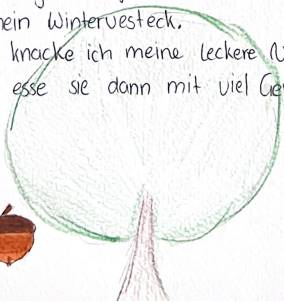 Winterversteck.
knacke ich meine leckere
esse sie dann mit viel